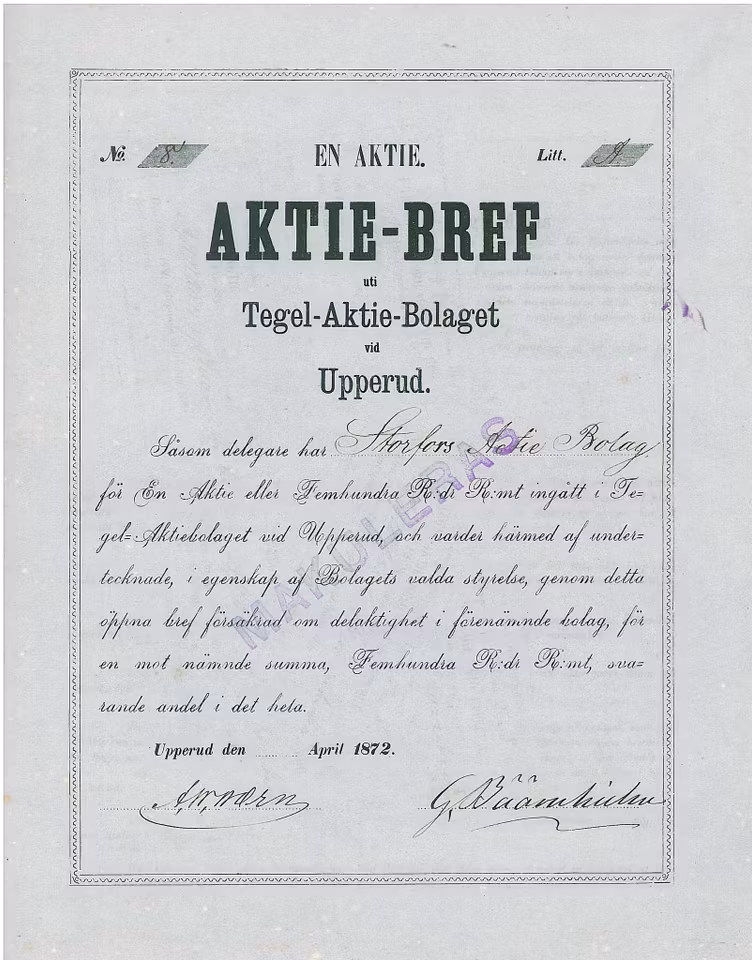 No. 8. EN AKTIE. Litt. A
AKTIE-BREF
uti
Tegel-Aktie-Bolaget
vid
Upperud.
Såsom delegare har Storfors Actie Bolag
för En Aktie eller Femhundra R:dr R:mt ingått i Te-
gel-Aktiebolaget vid Upperud, och varder härmed af under-
tecknade, i egenskap af Bolagets valda styrelse, genom detta
öppna bref försäkrad om delaktighet i förenämnde bolag, för
en mot nämnde summa, Femhundra R:dr R:mt, sva-
rande andel i det hela.
MAKULERAS
Upperud den ...... April 1872.
A, W, Wærn